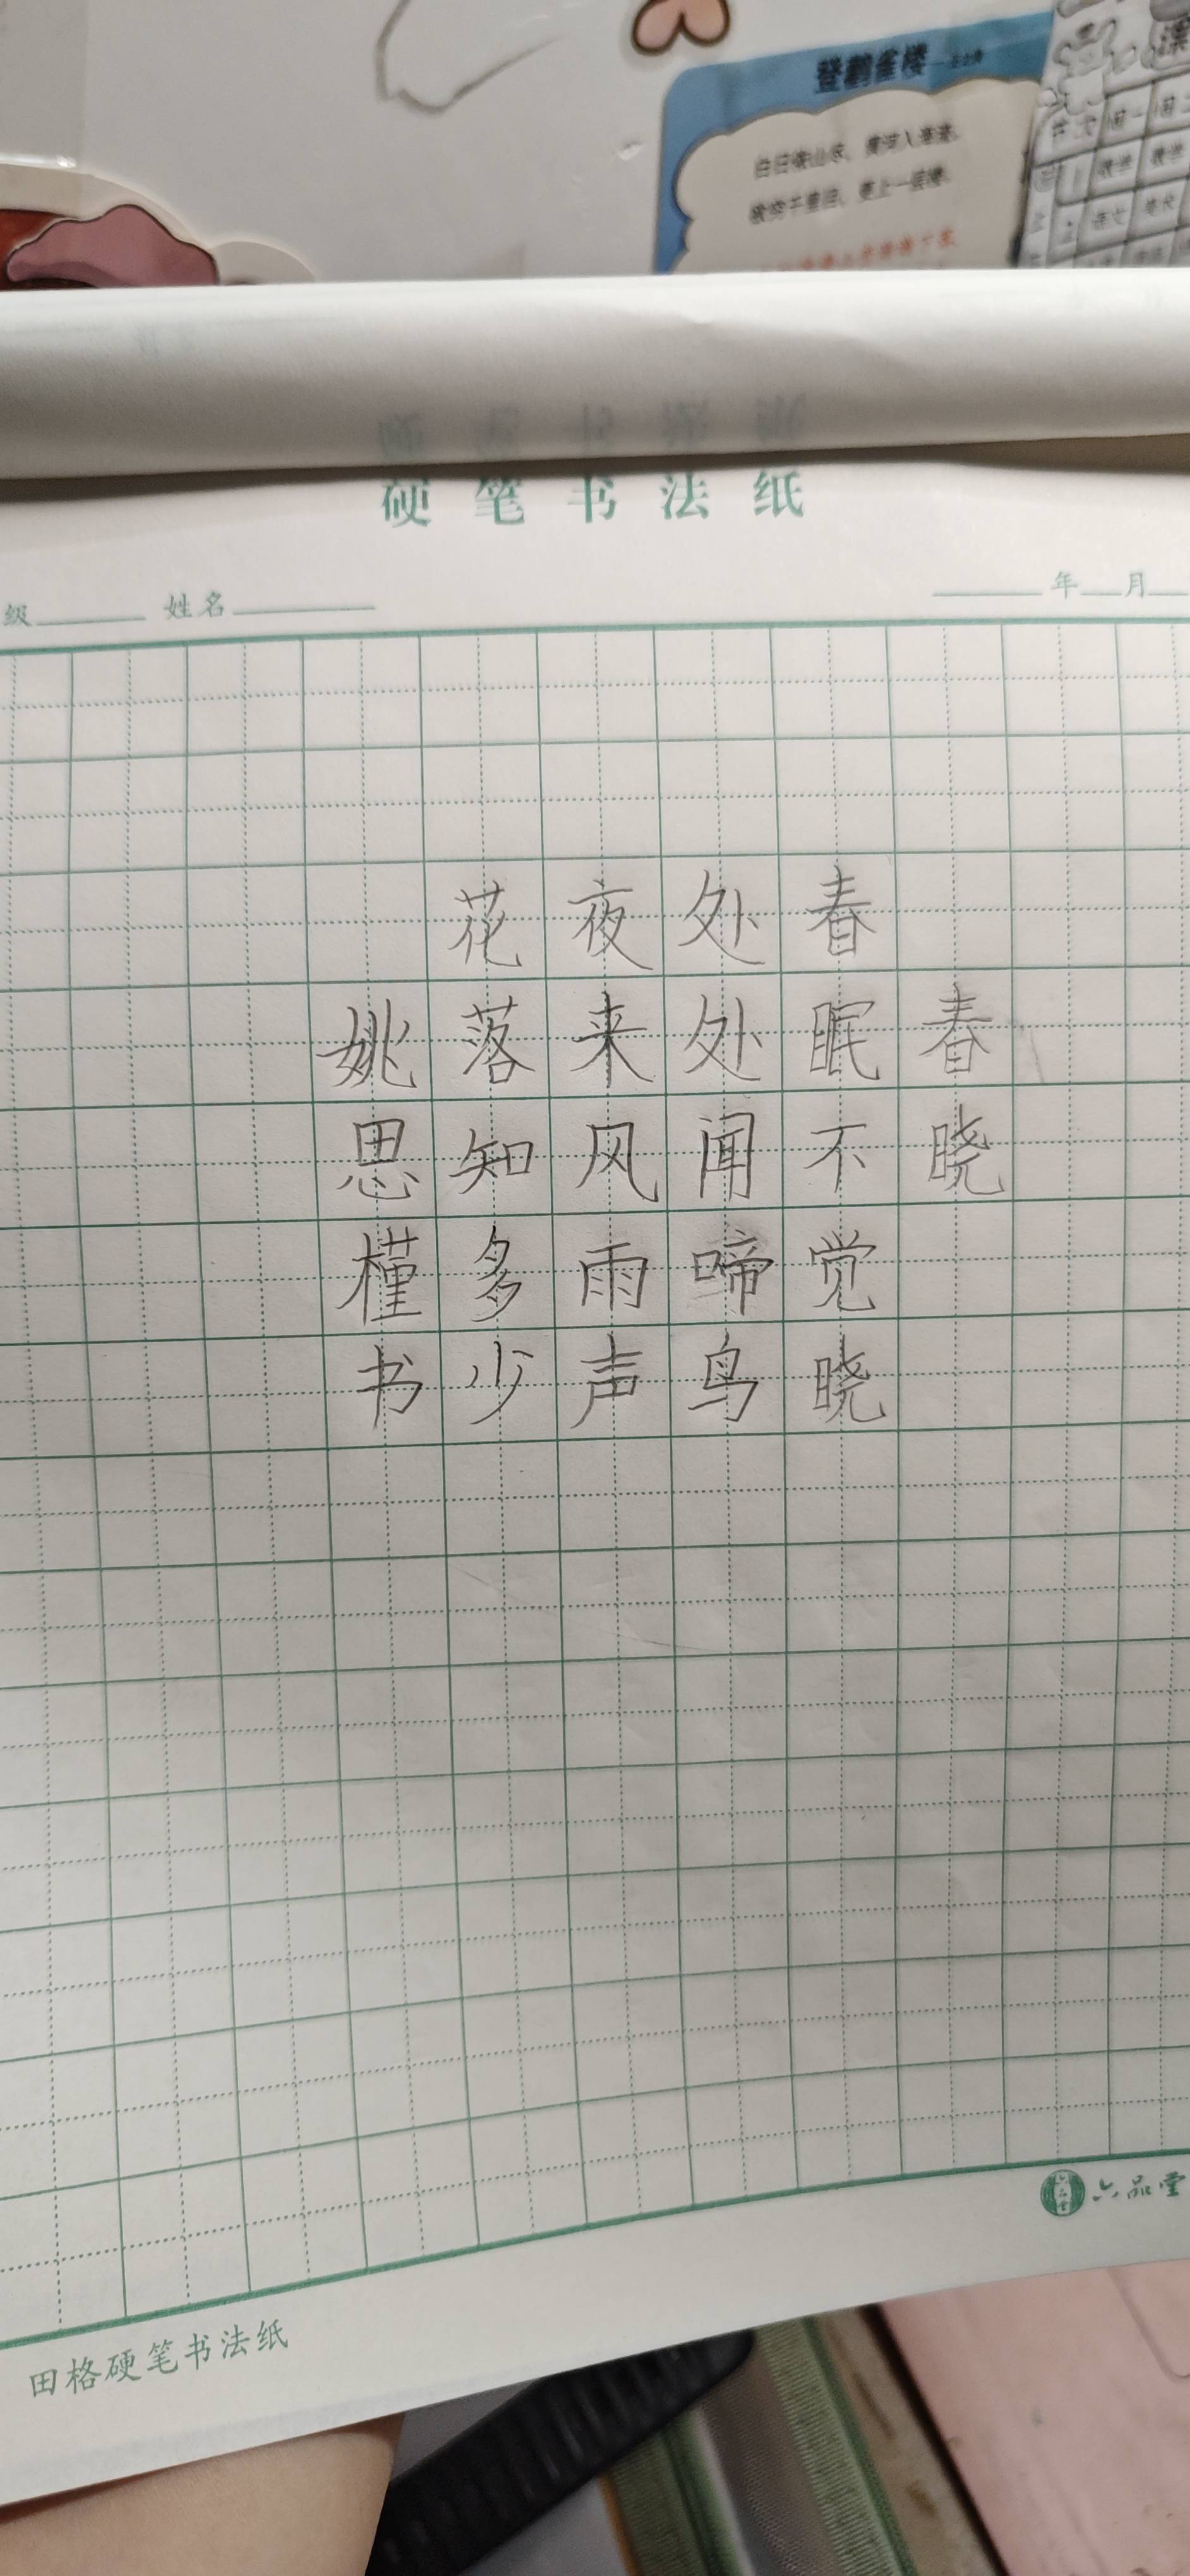 登鹳雀楼
白日依山尽，黄河入海流。
欲穷千里目，更上一层楼。
硬笔书法纸
级 姓名 年 月
春晓
春眠不觉晓
处处闻啼鸟
夜来风雨声
花落知多少
姚思槿书
六品堂
田格硬笔书法纸